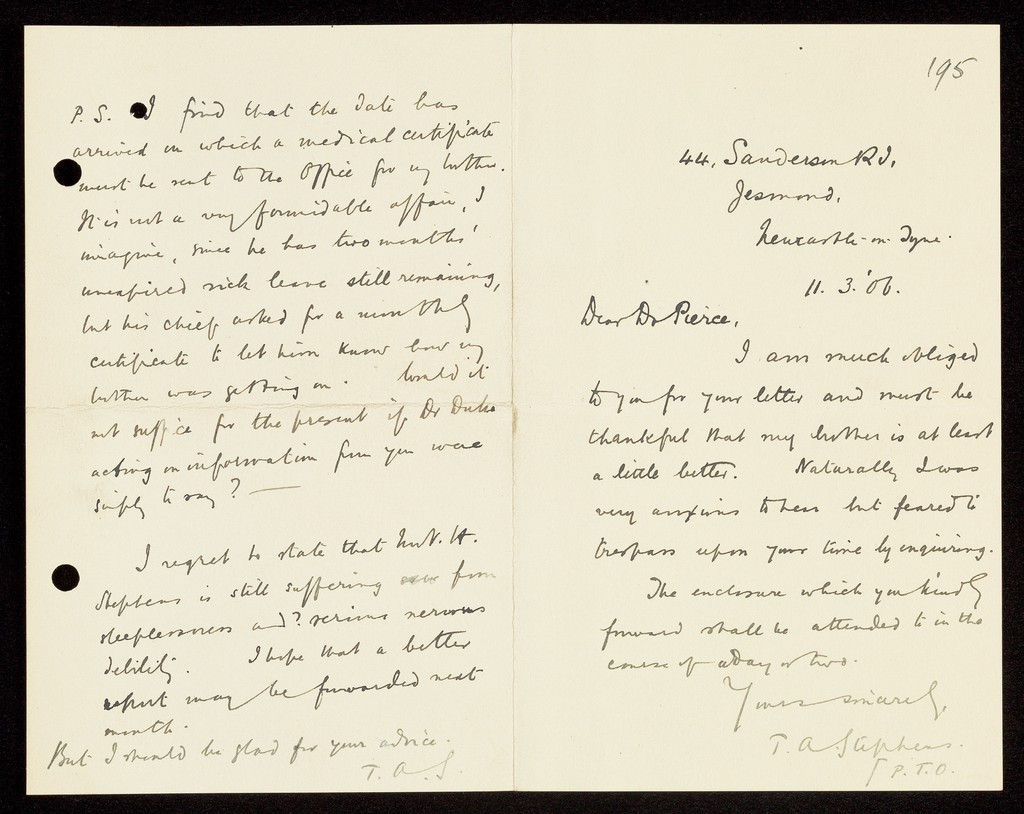 195
44, Sanderson Rd,
Jesmond,
Newcastle-on-Tyne.
11. 3. '06.
Dear Dr Pierce,
I am much obliged
to you for your letter and must be
thankful that my brother is at least
a little better. Naturally I was
very anxious to hear but feared to
trespass upon your time by inquiring.
The enclosure which you kindly
forward shall be attended to in the
course of a day or two.
Yours sincerely,
T. A. Stephens.
P.T.O.
P. S. I find that the date has
arrived on which a medical certificate
must be sent to the Office for my brother.
It is not a very formidable affair, I
imagine, since he has two months'
unexpired sick leave still remaining,
but his chief asked for a monthly
certificate to let him know how my
brother was getting on. Would it
not suffice for the present if Dr
acting on information from you were
simply to say? —
I regret to state that Mr N. H.
Stephens is still suffering from
sleeplessness and ? serious nervous
debility. I hope that a better
report may be forwarded next
month.
But I should be glad for your advice.
T. A. S.